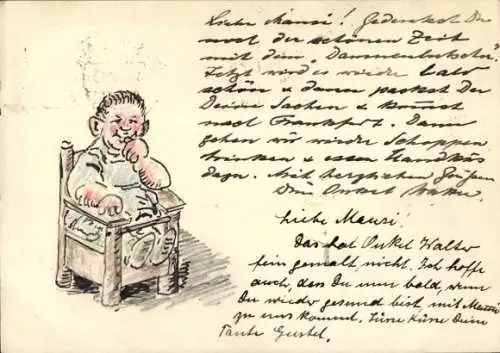 Liebe Mausi! Gedenkest Du
noch der schönen Zeit
mit dem "Daumenlutscher".
Jetzt wird es wieder bald
schön & dann packst Du
Deine Sachen & kommst
nach Frankfurt. Dann
gehen wir wieder Schoppen
trinken & essen Handkäs
dazu. Mit herzlichen Grüßen
Dein Onkel Walter.
Liebe Mausi!
Das hat Onkel Walter
fein gemalt, nicht. Ich hoffe
auch, dass Du nun bald, wenn
Du wieder gesund bist mit
zu uns kommst. Küsse Deine
Tante Gustel.